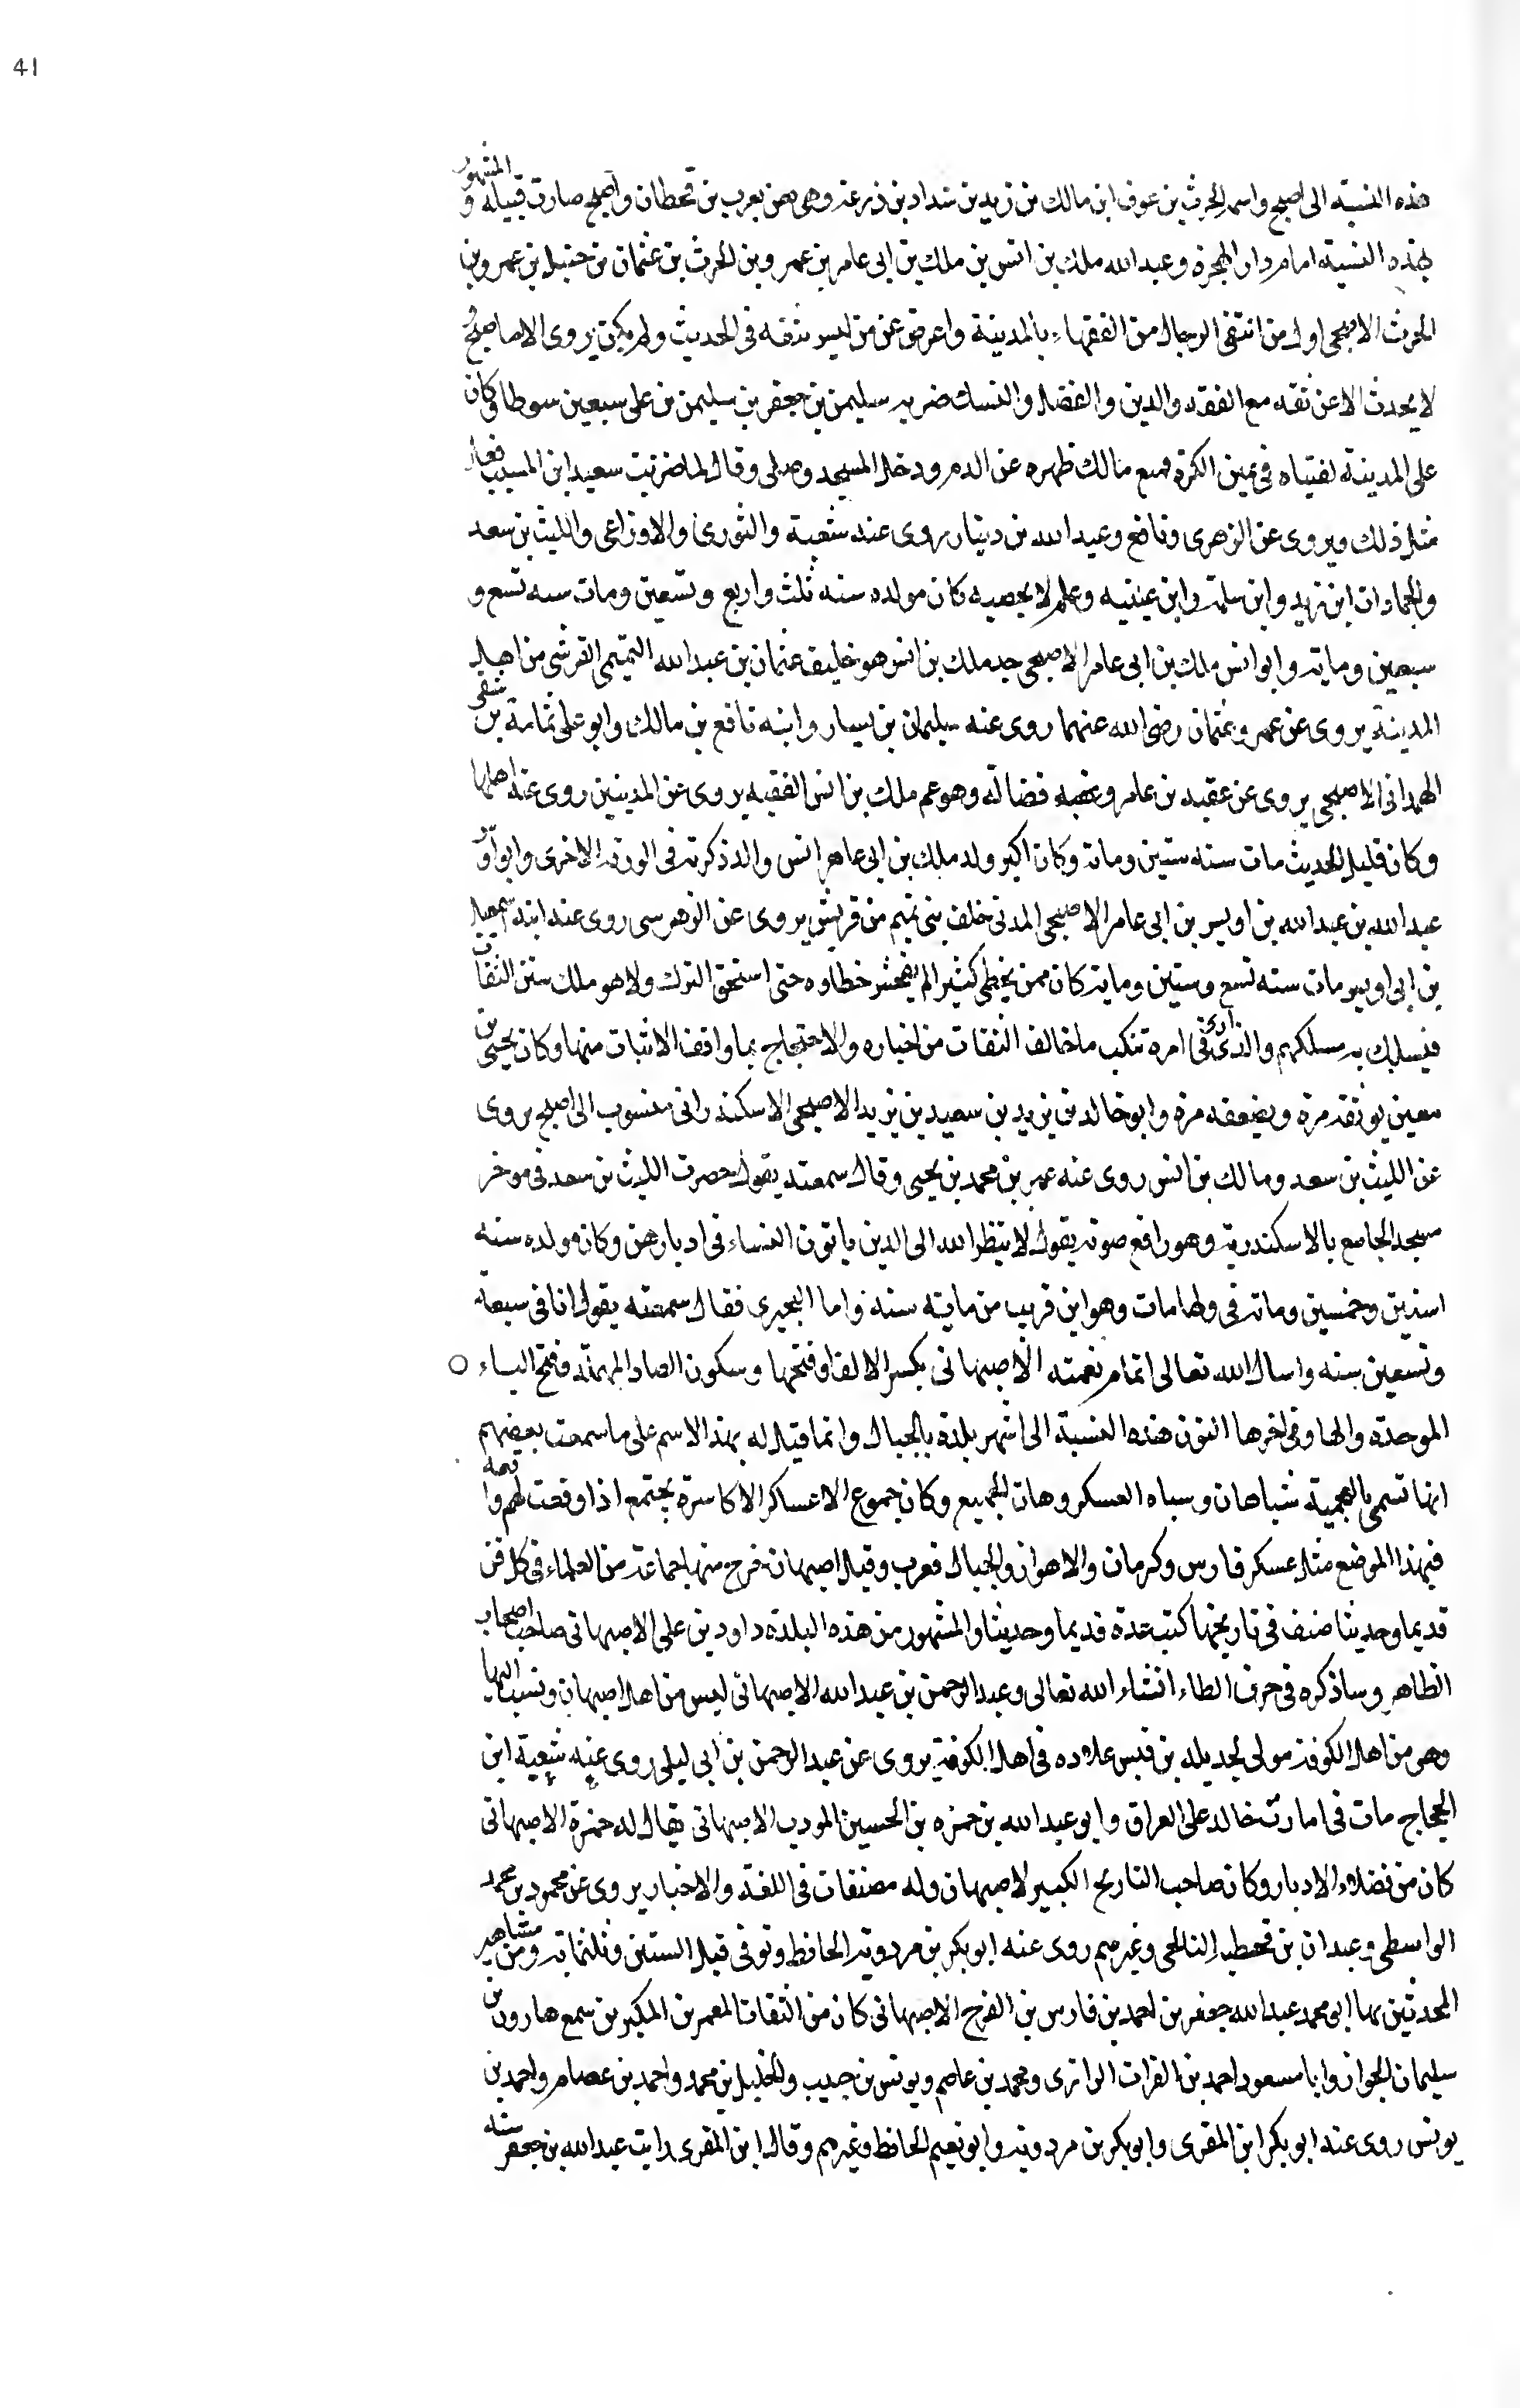 41
هذه النسبة الى اصبح واسمه الحرث بن عوف ابن مالك بن زيد بن شداد بن زرعه وهى من يعرب بن قحطان واصبح صارت قبيلة والمشهور
بهذه النسبة امام دار الهجرة وعبد الله ملك بن انس بن ملك بن ابى عامر بن عمرو بن الحرث بن عثمان بن خثيل بن عمرو بن
الحرث الاصبحى اول من انتقى الرجال من الفقهاء بالمدينة واعرض عن من ليس بثقه فى الحديث ولم يكن يروى الا ما صح و
لا يحدث الا عن ثقه مع الفقه والدين والفضل والنسك ضربه سليمن بن جعفر بن سليمن بن على سبعين سوطا وكان
على المدينة لفتياه فى يمين الكره فمسح مالك ظهره عن الدم ودخل المسجد وصلى وقال لما ضربت سعيد ابن المسيب فعل
مثل ذلك ويروى عن الزهرى ونافع وعبد الله بن دينار روى عنه شعبة والثورى والاوزاعى والليث بن سعد
والحمادان ابن زيد وابن سلمة وابن عيينه وعلم لا يحصيه كان مولده سنه ثلث واربع وتسعين ومات سنه تسع و
سبعين ومايه وابو انس ملك بن ابى عامر الاصبحى جد ملك بن انس هو خليف عثمان بن عبد الله التميمى القرشى من اهل
المدينة يروى عن عمر وعثمان رضى الله عنهما روى عنه سليمان بن يسار وابنه نافع بن مالك وابو على ثمامة بن شفى
الهمدانى الاصبحى يروى عن عقبه بن عامر و فضالة وهو عم ملك بن انس الفقيه يروى عن المدنيين روى عنه اهلها
وكان قليل الحديث مات سنه ستين وماية وكان اكبر ولد ملك بن ابى عامر انس والد ذكرته فى الورقه الاخرى وابو او
عبد الله بن عبد الله بن اويس بن ابى عامر الاصبحى المدنى خلف بنى تميم من قريش يروى عن الزهرى روى عنه ابنه اسمعيل
بن ابى اويس مات سنه تسع وستين ومايه كان ممن يخطى كثيرا لم يفحش خطاوه حتى استحق الترك ولا هو ملك سنن الثقات
فيسلك به مسلكهم والذى ارى فى امره تنكب ما خالف الثقات من اخباره والاحتجاج بما وافق الاثبات منها وكان يحيى بن
معين يوثقه مرة ويضعفه مرة وابو خالد بن يزيد بن سعيد بن يزيد الاصبحى الاسكندرانى منسوب الى اصبح يروى
عن الليث بن سعد ومالك بن انس روى عنه عمر بن محمد بن يحيى وقال سمعته يقول حضرت الليث بن سعد فى موخر
مسجد الجامع بالاسكندرية وهو رافع صوته يقول لا ينظر الله الى الدين ياتون النساء فى ادبارهن وكان مولده سنه
اسنتين وخمسين ومايه فى ولها مات وهو ابن قريب من مايه سنه واما البحيرى فقال سمعته يقول انا فى سبعة
وتسعين سنه واسال الله تعالى اتمام نعمته الاصبهانى بكسر الالف او فتحها وسكون الصاد المهملة وفتح الباء ○
الموحدة والها وفى اخرها النون هذه النسبة الى اشهر بلدة بالجبال وانما قيل له بهذا الاسم على ما سمعت بعضهم
انها تسمى بالعجمية سباهان وسباه العسكر وهان الجميع وكان جموع الاعساكر الاكاسرة يجتمع اذا وقعت لهم واقعه
فى هذا الموضع مثل عسكر فارس وكرمان والاهواز والجبال فعرب وقيل اصبهان خرج منها جماعة من العلماء فى كل فن
قديما وحديثا صنف فى تاريخها كتب عدة قديما وحديثا والمشهور من هذه البلدة داود بن على الاصبهانى صاحب اصحاب
الظاهر وساذكره فى حرف الطاء انشاء الله تعالى وعبد الرحمن بن عبد الله الاصبهانى ليس من اهل اصبهان ونسب اليها
وهو من اهل الكوفة مولى لجديله بن قيس عداده فى اهل الكوفة يروى عن عبد الرحمن بن ابى ليلى روى عنه شعبة ابن
الحجاج مات فى امارت خالد على العراق وابو عبد الله بن حمزه بن الحسين المودب الاصبهانى يقال له حمزة الاصبهانى
كان من فضلاء الادباء وكان صاحب التاريخ الكبير لاصبهان وله مصنفات فى اللغة والاخبار يروى عن محمود بن محمد
الواسطى وعبدان بن قحطبه وغيرهم روى عنه ابو بكر بن مردويه الحافظ وتوفى قبل الستين وثلثمائه ومن مشاهير
المحدثين بها ابى محمد عبد الله جعفر بن احمد بن فارس بن الفرج الاصبهانى كان من الثقات المعمرين المكبرين سمع هارون بن
سليمان الجواز وابا مسعود احمد بن الفرات الرازى ومحمد بن عاصم ويونس بن حبيب والخليل بن محمد واحمد بن عصام واحمد بن
يونس روى عنه ابو بكر ابن المقرى وابو بكر بن مردويه وابو نعيم الحافظ وغيرهم وقال ابن المقرى رايت عبد الله بن جعفر سنه